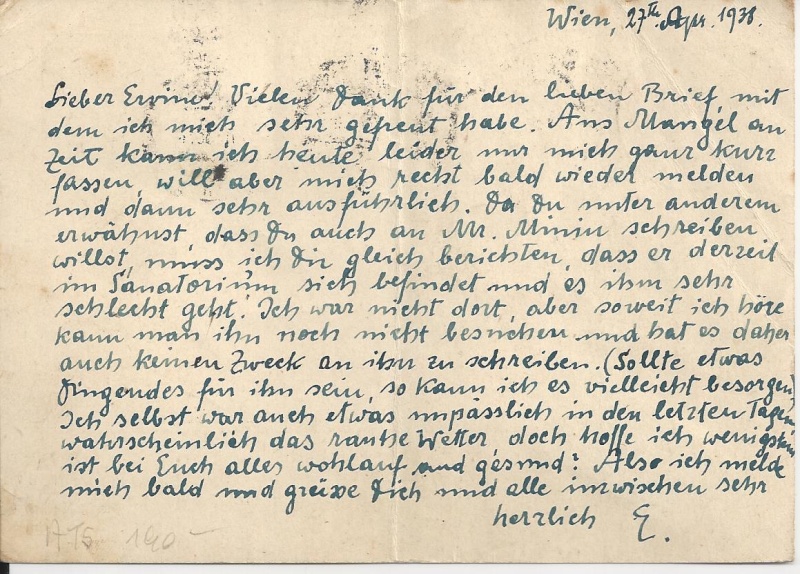 Wien, 27th Apr. 1938.
Lieber Erwin! Vielen Dank für den lieben Brief, mit
dem ich mich sehr gefreut habe. Aus Mangel an
Zeit kann ich heute leider nur mich ganz kurz
fassen, will aber mich recht bald wieder melden
und dann sehr ausführlich. Da Du unter anderem
erwähnst, dass Du auch an Mr. schreiben
willst, muss ich Dir gleich berichten, dass er derzeit
im Sanatorium sich befindet und es ihm sehr
schlecht geht. Ich war nicht dort, aber soweit ich höre
kann man ihn noch nicht besuchen und hat es daher
auch keinen Zweck an ihn zu schreiben. (Sollte etwas
Dringendes für ihn sein, so kann ich es vielleicht besorgen)
Ich selbst war auch etwas unpässlich in den letzten Tagen
wahrscheinlich das rauhe Wetter, doch hoffe ich wenigstens
ist bei Euch alles wohlauf und gesund? Also ich melde
mich bald und grüsse Dich und alle inzwischen sehr
herzlich E.
ATS 190-